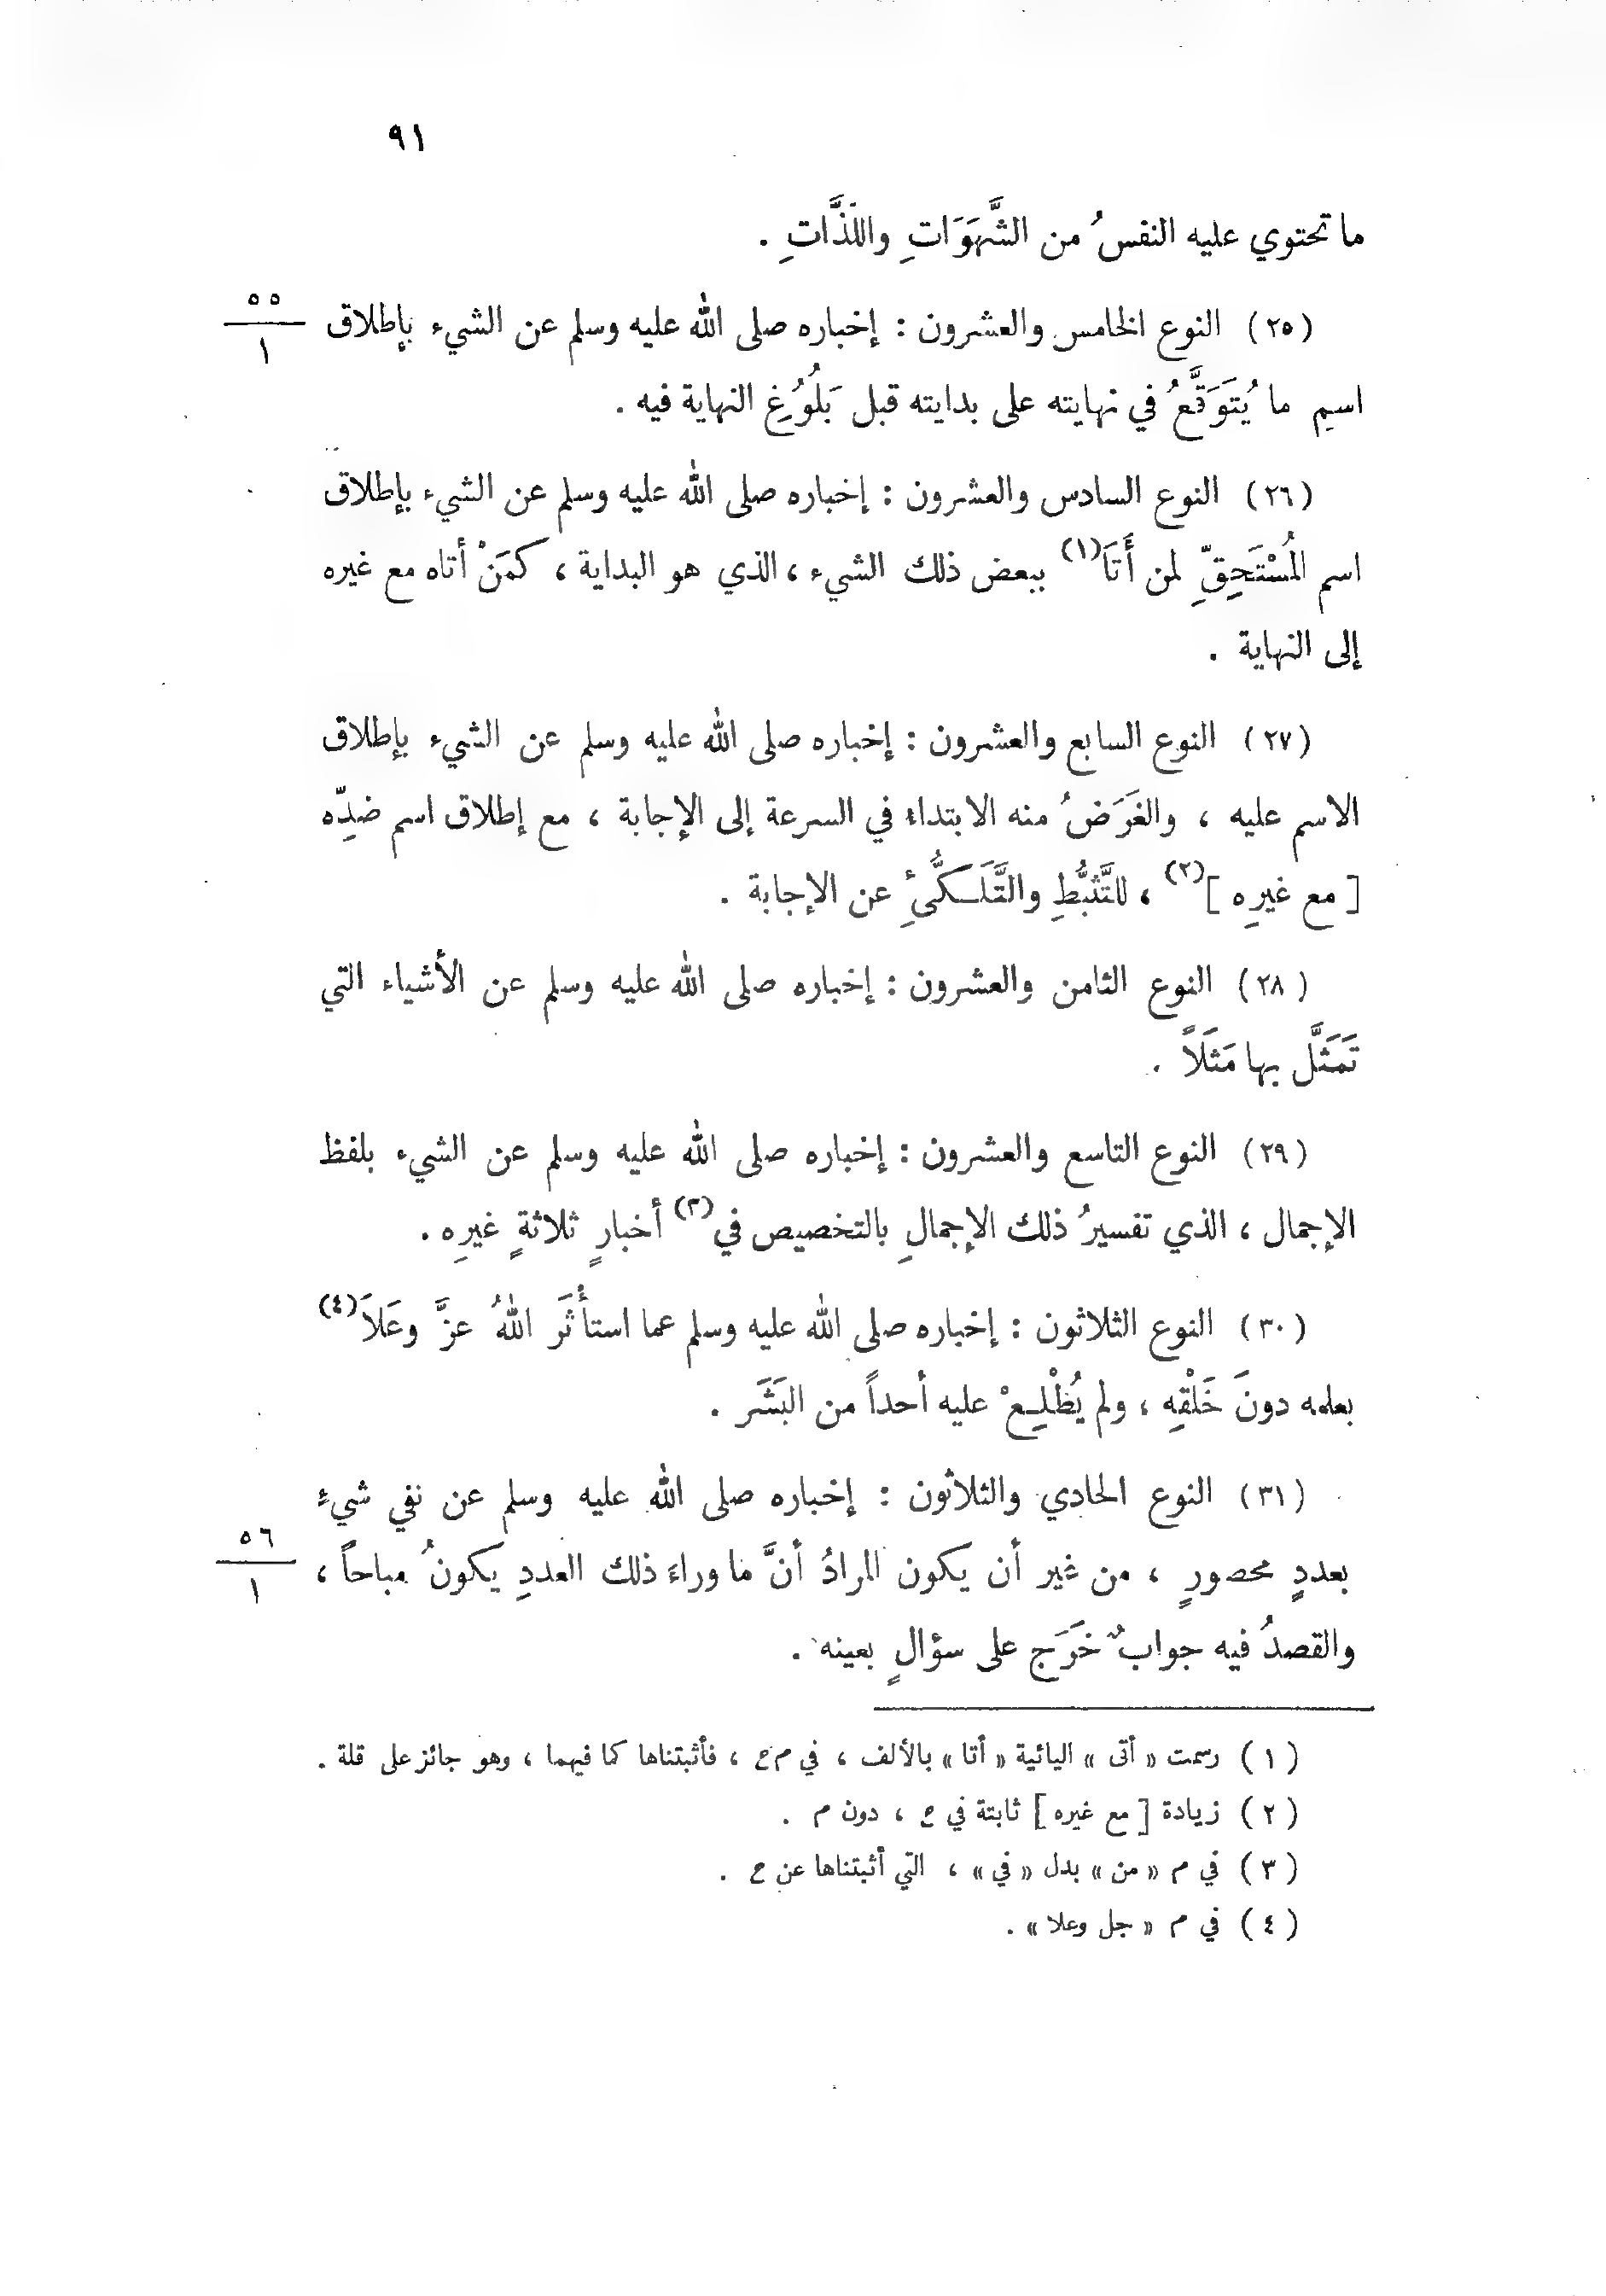 ٩١
ما تحتوي عليه النفسُ من الشَّهَوَاتِ واللَّذَّاتِ .
(٢٥) النوع الخامس والعشرون : إخباره صلى الله عليه وسلم عن الشيء بإطلاق
٥٥
١
اسمِ ما يُتَوَقَّعُ في نهايته على بدايته قبل بَلُوُغِ النهاية فيه .
(٢٦) النوع السادس والعشرون : إخباره صلى الله عليه وسلم عن الشيء بإطلاق
اسم المُسْتَحِقِّ لمن أَتَا(١) ببعض ذلك الشيء ، الذي هو البداية ، كمَنْ أتاه مع غيره
إلى النهاية .
(٢٧) النوع السابع والعشرون : إخباره صلى الله عليه وسلم عن الشيء بإطلاق
الاسم عليه ، والغَرَضُ منه الابتداء في السرعة إلى الإجابة ، مع إطلاق اسم ضدِّه
[ مع غيرِه ](٢) ، للتَّثَبُّطِ والتَّلَكُّئِ عن الإجابة .
(٢٨) النوع الثامن والعشرون : إخباره صلى الله عليه وسلم عن الأشياء التي
تَمَثَّل بها مَثَلاً .
(٢٩) النوع التاسع والعشرون : إخباره صلى الله عليه وسلم عن الشيء بلفظ
الإجمال ، الذي تفسيرُ ذلك الإجمالِ بالتخصيص في(٣) أخبارٍ ثلاثةٍ غيرِه .
(٣٠) النوع الثلاثون : إخباره صلى الله عليه وسلم عما استأْثَر اللهُ عزَّ وعَلاَ(٤)
بعلمه دونَ خَلْقِه ، ولم يُطْلِعْ عليه أحداً من البَشَر .
(٣١) النوع الحادي والثلاثون : إخباره صلى الله عليه وسلم عن نفي شيءٍ
بعددٍ محصورٍ ، من غير أن يكون المرادُ أنَّ ما وراءَ ذلك العددِ يكونُ مباحاً ،
٥٦
١
والقصدُ فيه جوابٌ خَرَج على سؤالٍ بعينه .
(١) رسمت « أتى » اليائية « أتا » بالألف ، في م ح ، فأثبتناها كما فيهما ، وهو جائز على قلة .
(٢) زيادة [ مع غيره ] ثابتة في ح ، دون م .
(٣) في م « من » بدل « في » ، التي أثبتناها عن ح .
(٤) في م « جل وعلا » .